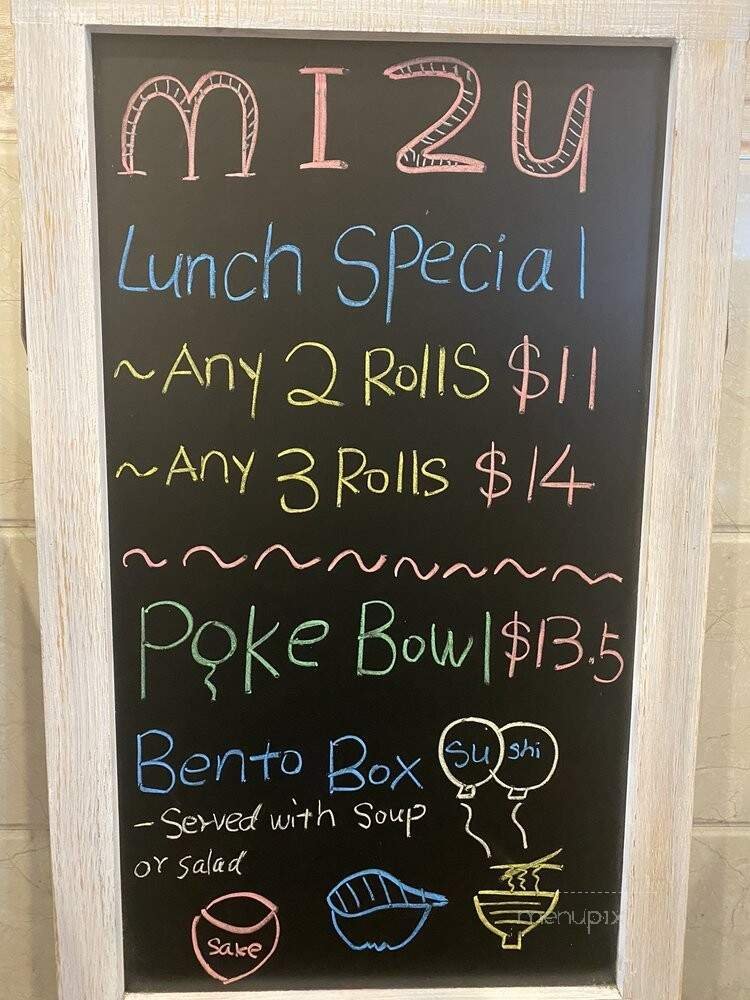 MIZU
Lunch Special
~Any 2 Rolls $11
~Any 3 Rolls $14
Poke Bowl $13.5
Bento Box
su shi
-Served with Soup
or salad
Sake
menupix